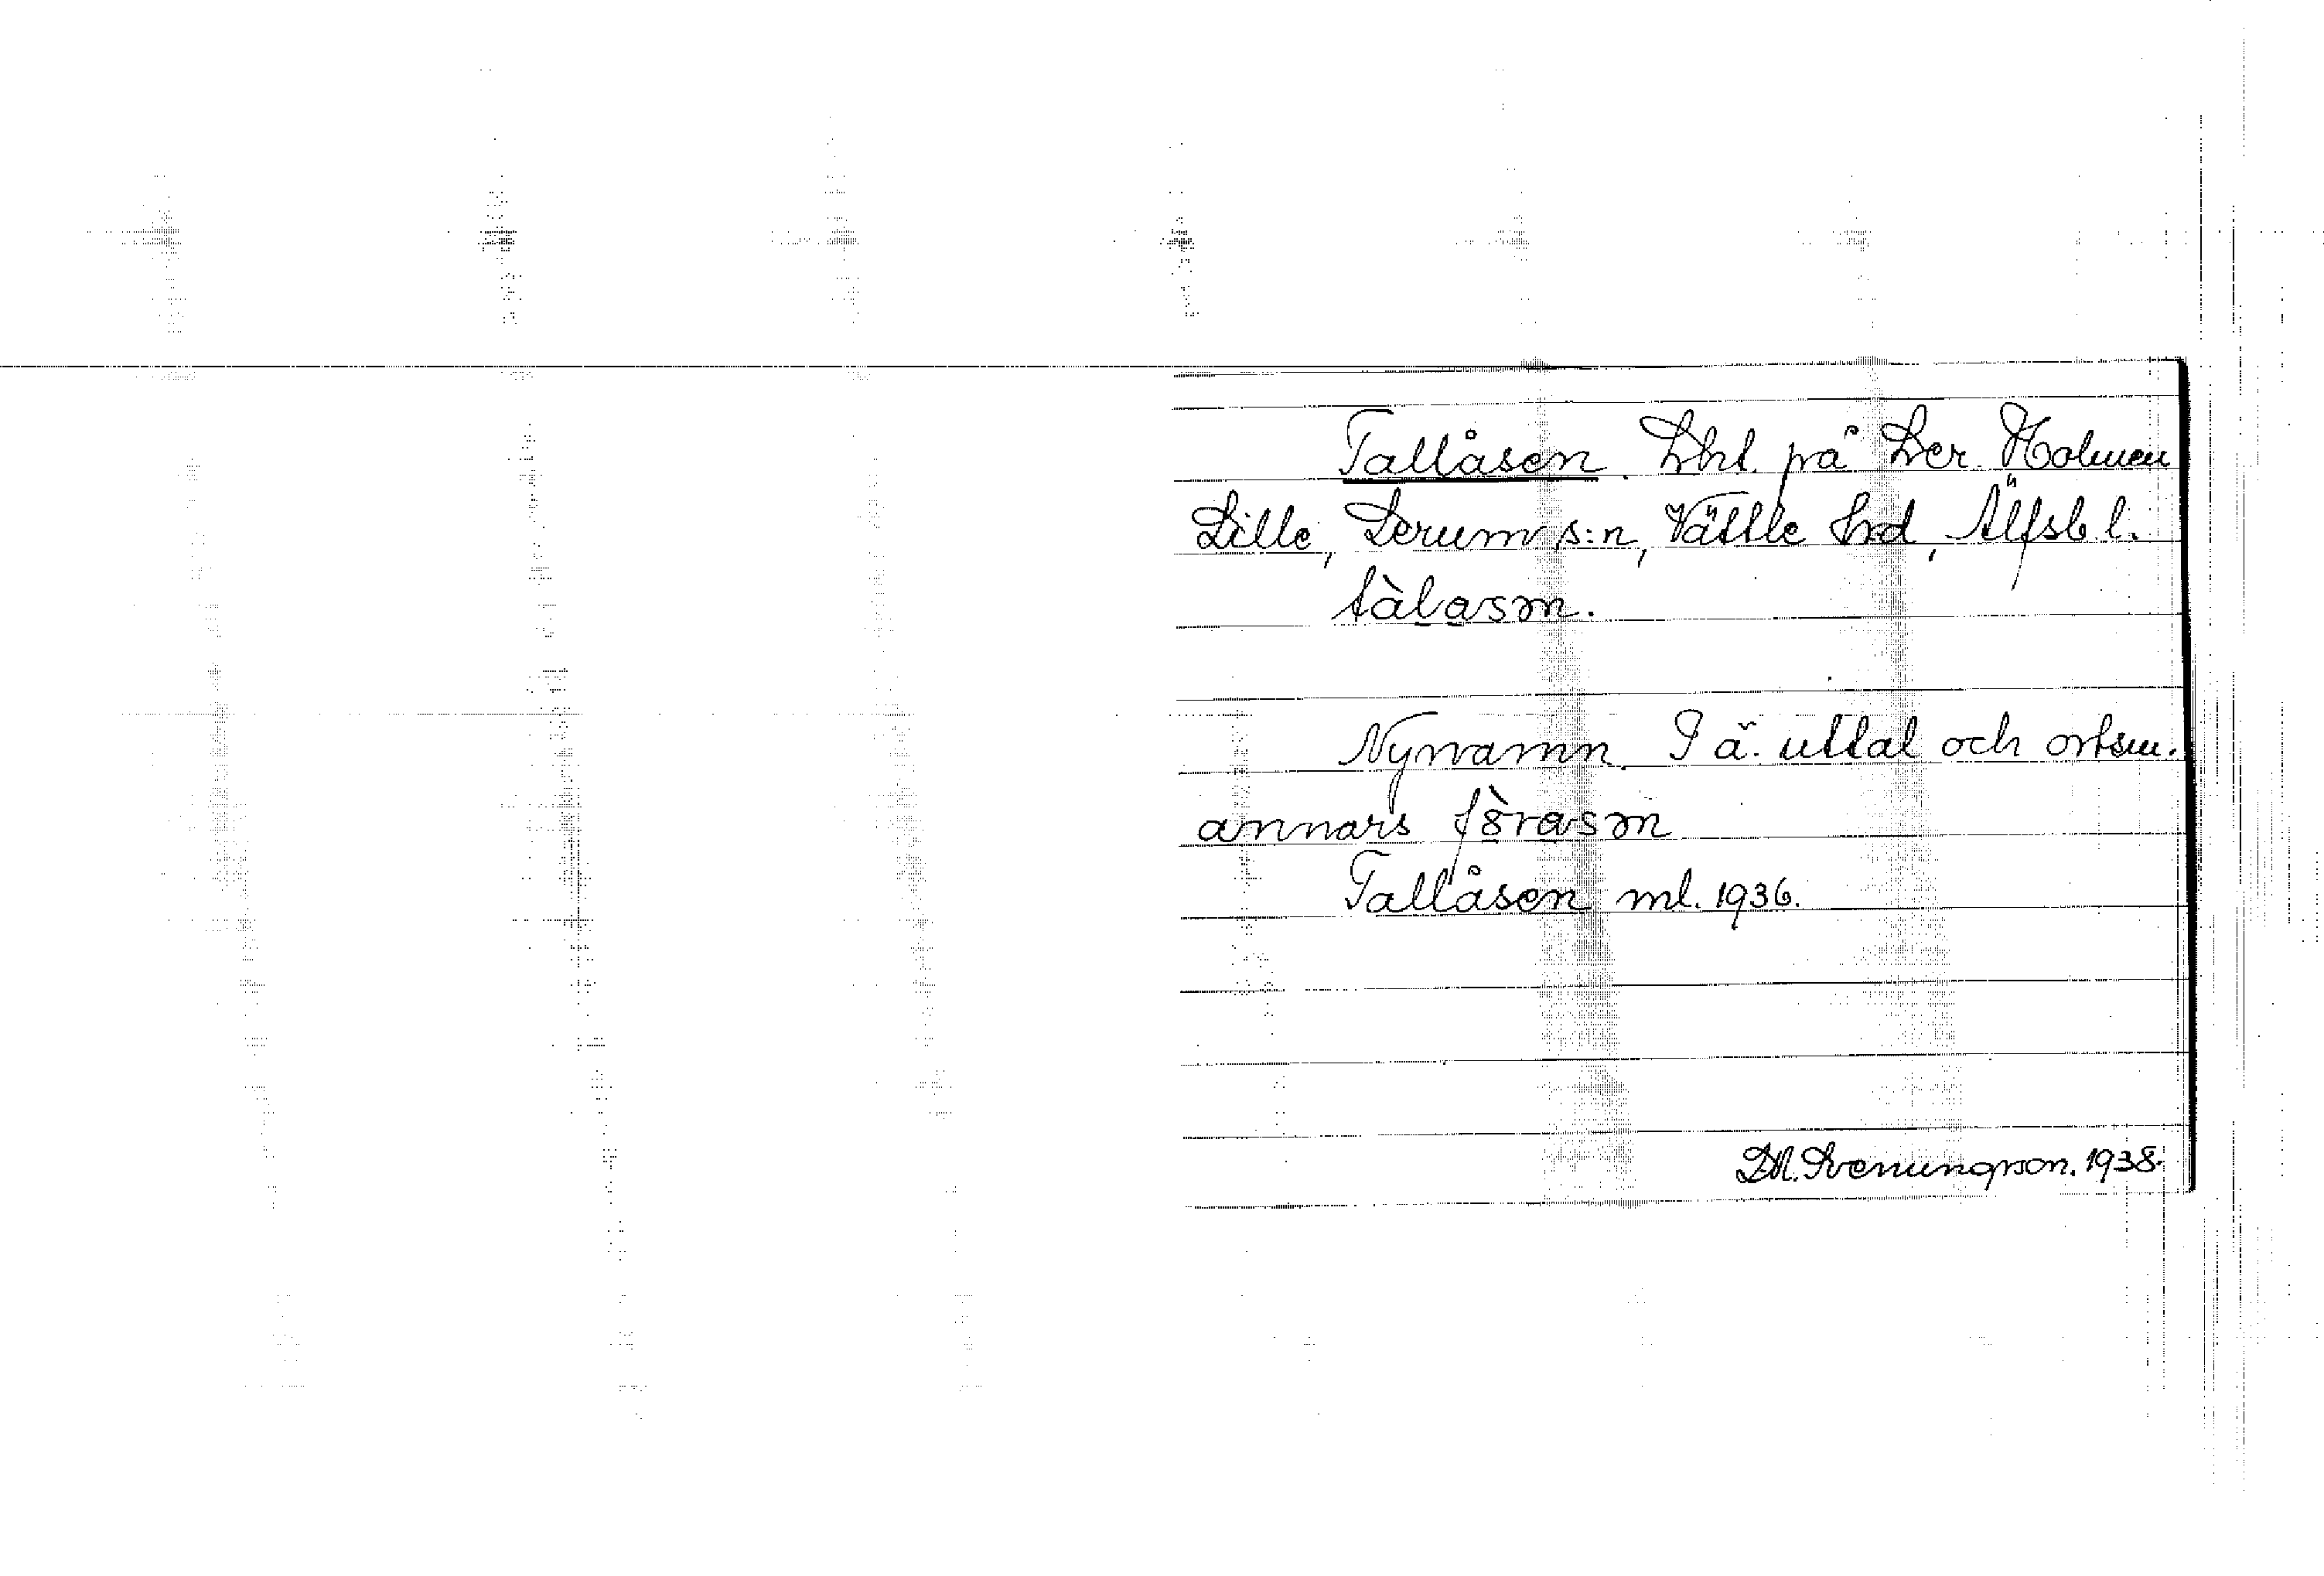 Tallåsen. Lht. på Ler. Holmen
Lille, Lerum s:n, Vättle hrd, Älfsb. l.
tàlasən.
Nynamn. I ä. uttal och ortsm.
annars fòrasən
Tallåsen ml. 1936.
D.A. Svenungson. 1938.